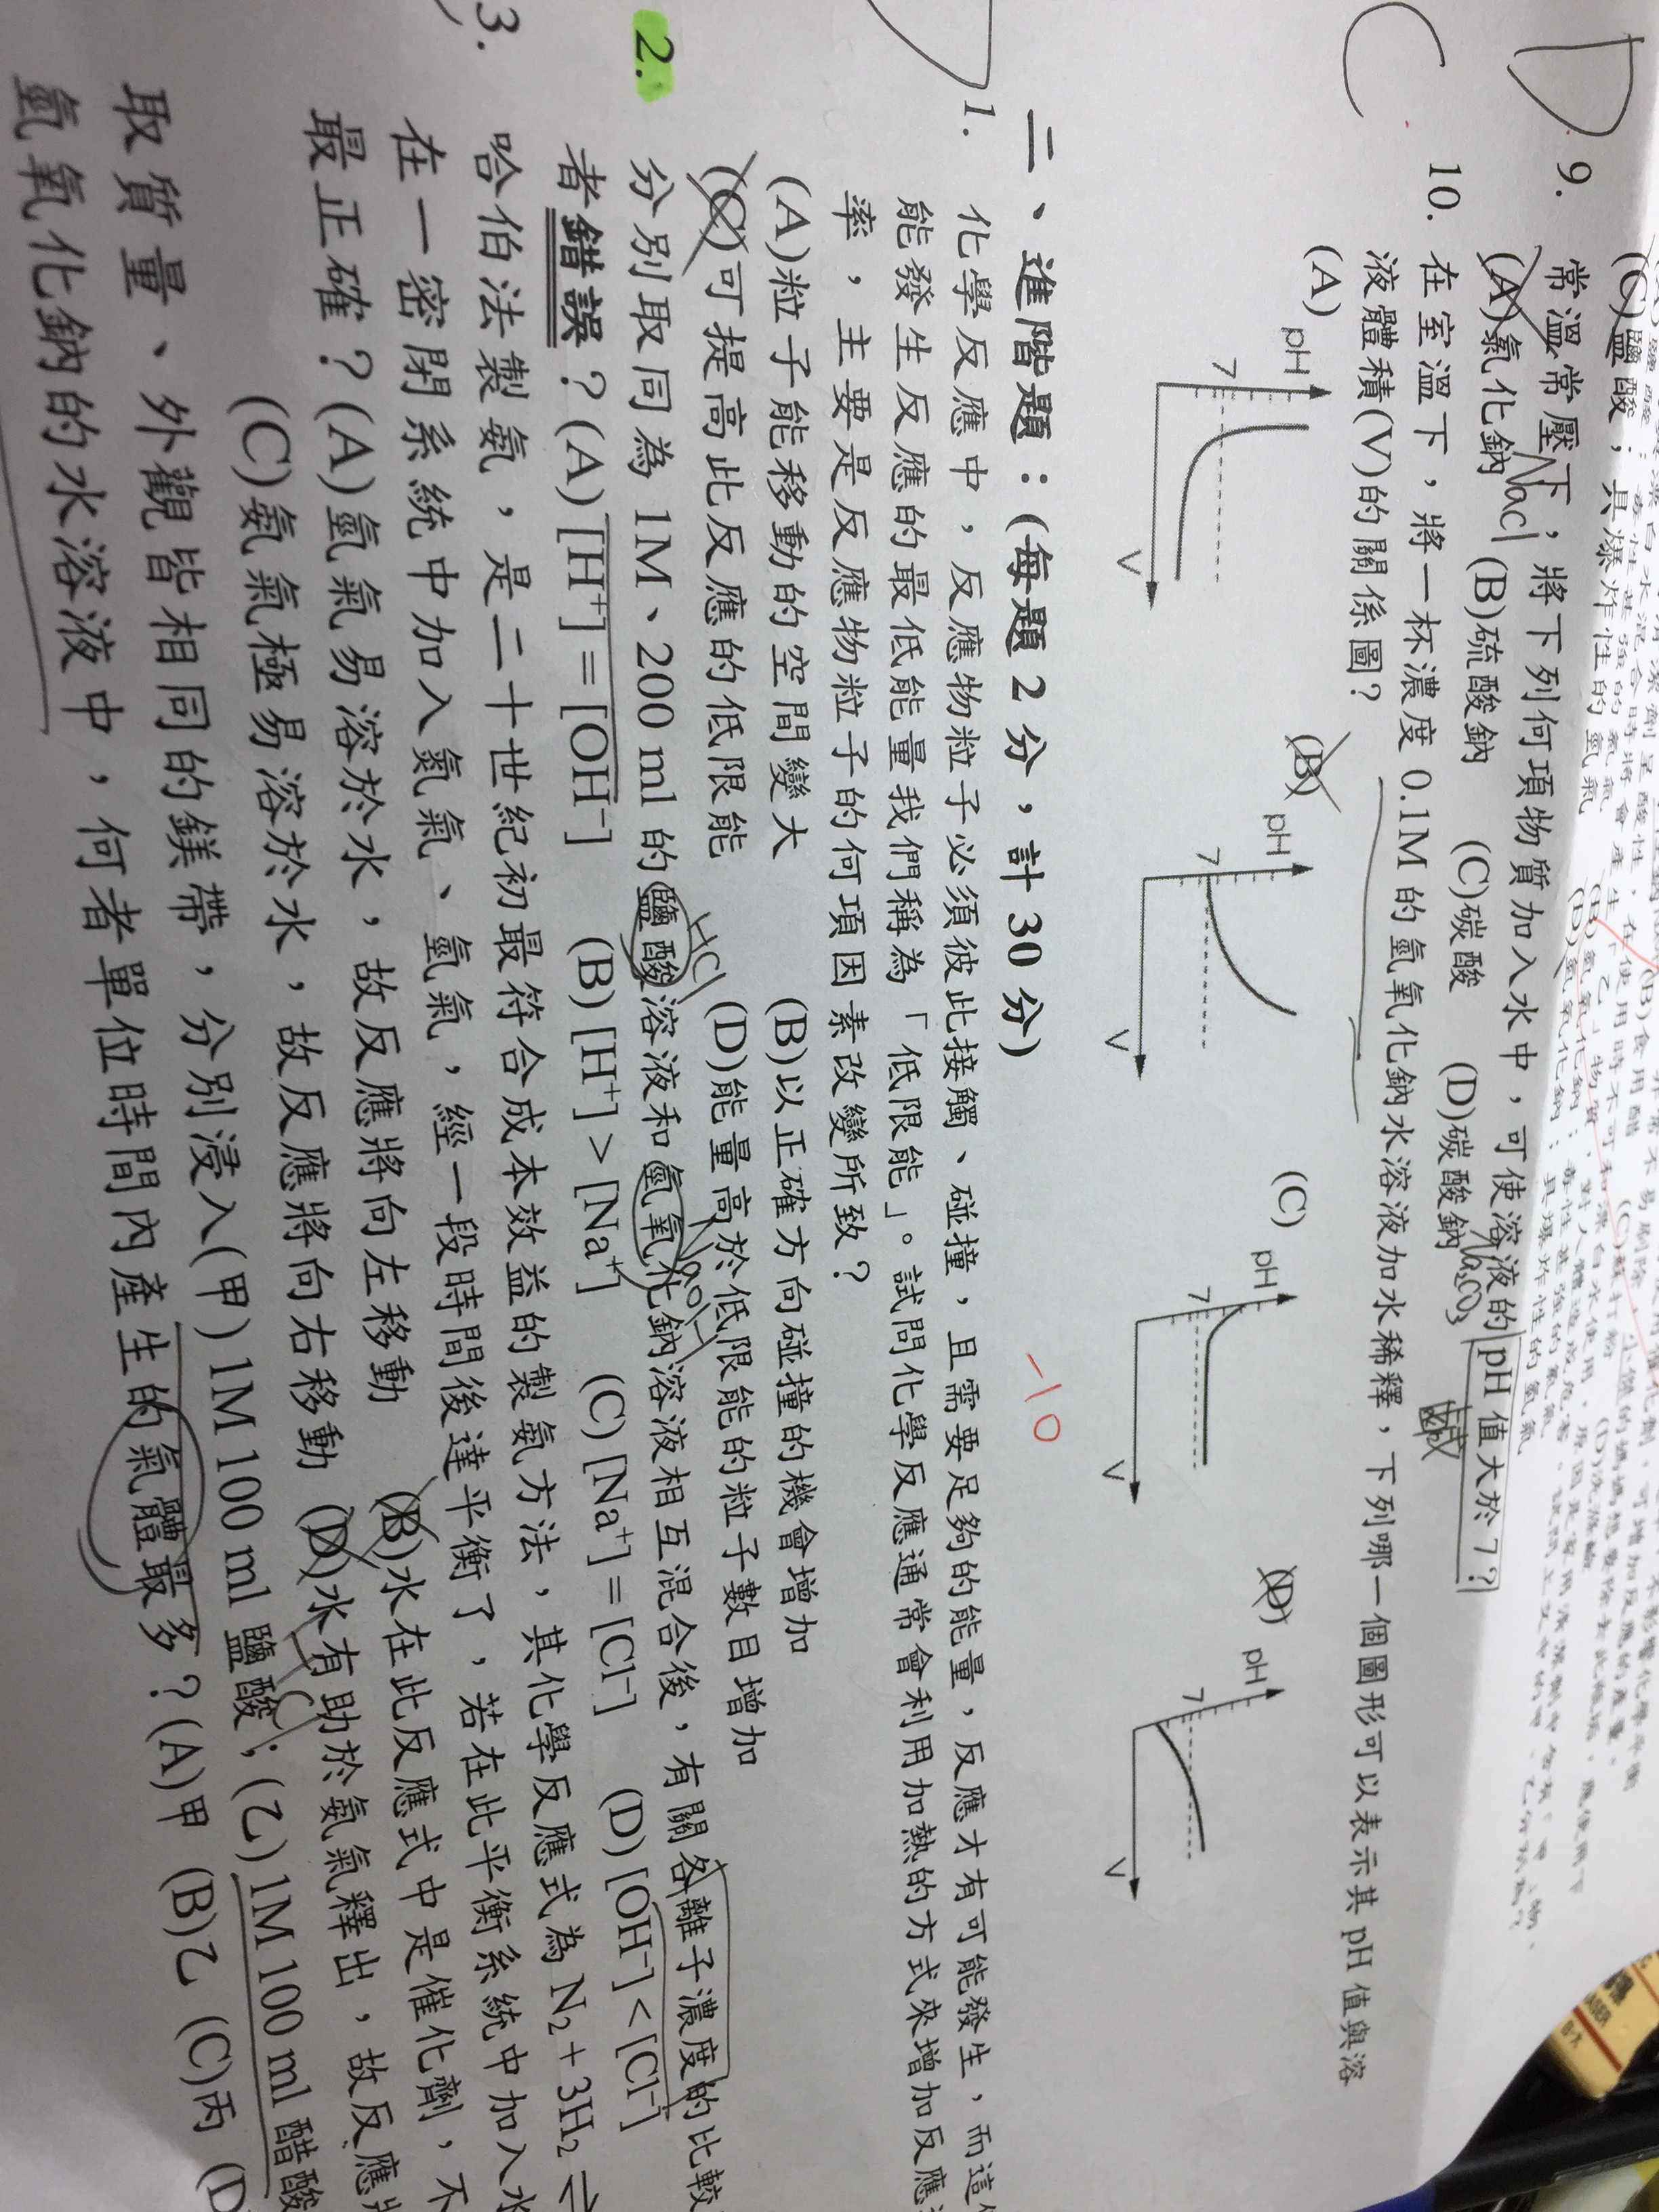 (C)鹽酸；具爆炸性的氫氣
(D)氫氧化鈉；具爆炸性的氫氣
D 9. 常溫常壓下，將下列何項物質加入水中，可使溶液的 pH 值大於 7？
(A)氯化鈉 NaCl (B)硫酸鈉 (C)碳酸 (D)碳酸鈉 Na2CO3 鹼
C 10. 在室溫下，將一杯濃度 0.1M 的氫氧化鈉水溶液加水稀釋，下列哪一個圖形可以表示其 pH 值與溶
液體積(V)的關係圖？
(A) (B) (C) (D)
pH pH pH pH
7 7 7 7
V V V V
二、進階題：(每題 2 分，計 30 分)
-10
D 1. 化學反應中，反應物粒子必須彼此接觸、碰撞，且需要足夠的能量，反應才有可能發生，而這
能發生反應的最低能量我們稱為「低限能」。試問化學反應通常會利用加熱的方式來增加反應
率，主要是反應物粒子的何項因素改變所致？
(A)粒子能移動的空間變大 (B)以正確方向碰撞的機會增加
(C)可提高此反應的低限能 (D)能量高於低限能的粒子數目增加
HCl
2. 分別取同為 1M、200 ml 的鹽酸溶液和氫氧化鈉溶液相互混合後，有關各離子濃度的比較
者錯誤？(A) [H⁺] = [OH⁻] (B) [H⁺] > [Na⁺] (C) [Na⁺] = [Cl⁻] (D) [OH⁻] < [Cl⁻]
3. 哈伯法製氨，是二十世紀初最符合成本效益的製氨方法，其化學反應式為 N₂ + 3H₂ ⇌
在一密閉系統中加入氮氣、氫氣，經一段時間後達平衡了，若在此平衡系統中加入水
最正確？(A)氫氣易溶於水，故反應將向左移動 (B)水在此反應式中是催化劑，不
(C)氨氣極易溶於水，故反應將向右移動 (D)水有助於氨氣釋出，故反應
取質量、外觀皆相同的鎂帶，分別浸入(甲) 1M 100 ml 鹽酸；(乙) 1M 100 ml 醋酸
氫氧化鈉的水溶液中，何者單位時間內產生的氣體最多？(A)甲 (B)乙 (C)丙 (D